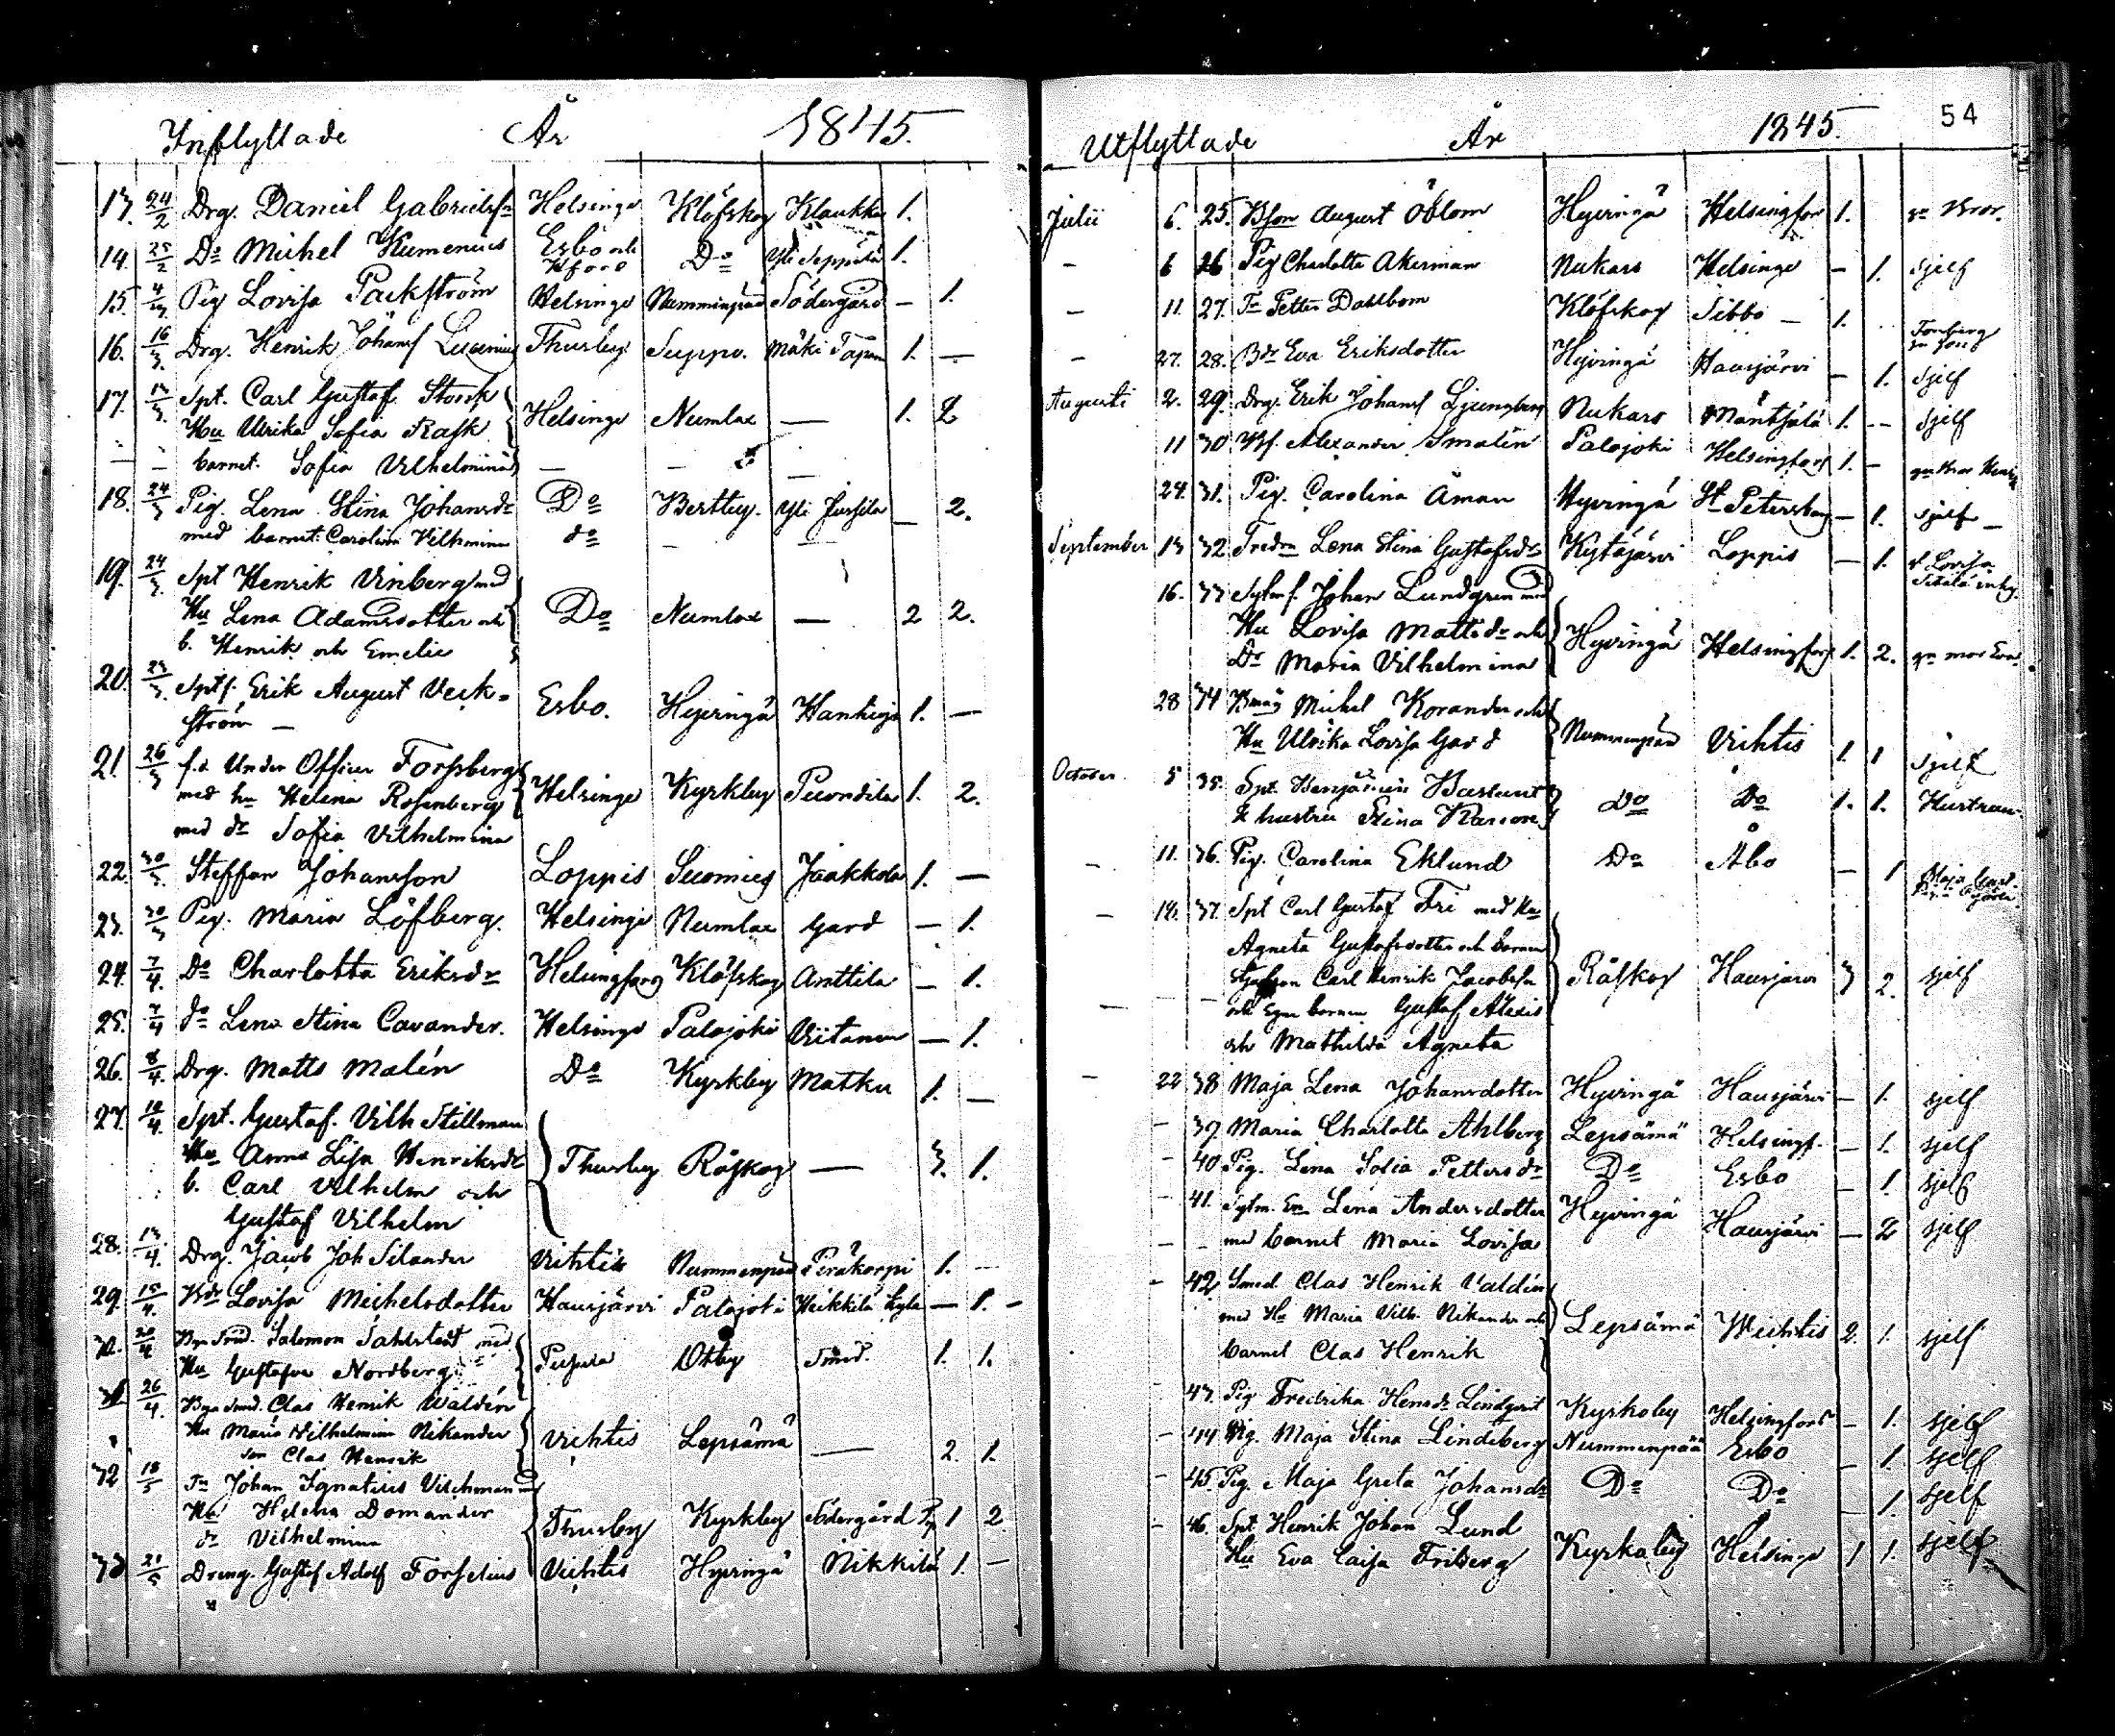 Inflyttade År 1845.
13. 24/2 Drg. Daniel Gabrielss Helsinge Klöfskog Klaukka 1.
14. 25/2 Do Michel Kumenius Esbo och Hfors Do Yli Seppälä 1.
15. 4/3 Pig Lovisa Packström Helsinge Nummenpää Södergård — 1.
16. 16/3 Drg. Henrik Johans Thusby Suppo. Mäki Tapan 1. —
17. 17/3 Spt. Carl Gustaf Storck
Hu Ulrika Sofia Rask Helsinge Numlax — 1. 2
— — barnet. Sofia Vilhelmina — —
18. 24/3 Pig. Lena Stina Johansdr Do Bertby. Yli Jussila — 2.
med barnet Carolina Vilhmina do — —
19. 24/3 Spt Henrik Vinberg med
Hu Lena Adamsdotter och Do Numlax — 2 2.
b. Henrik och Emelie
20. 25/3 Sptf. Erik August Veck-
ström — Esbo. Hyvingä 1. —
21. 26/3 f.d. Under Officer Forssberg
med hu Helena Rosenberg Helsinge Kyrkby 1. 2.
med dr Sofia Vilhelmina
22. 30/3 Steffan Johansson Loppis Suomies Jaakkola 1. —
23. 30/3 Pig. Maria Löfberg. Helsinge Numlax Gard — 1.
24. 7/4 Do Charlotta Eriksdr Helsingfors Klöfskog Anttila — 1.
25. 7/4 do Lena Stina Cavander. Helsinge Palojoki Viitanen — 1.
26. 8/4 Drg. Matts Malén Do Kyrkby Matku 1. —
27. 10/4 Spt. Gustaf Vilh Stillman
Hu Anna Lisa Henriksdr Thusby Röskog — 3. 1.
b. Carl Vilhelm och
Gustaf Vilhelm
28. 13/4 Drg. Jacob Joh Silander Vihtis Nummenpää Peräkorpi 1. —
29. 15/4 Bdr Lovisa Michelsdotter Hausjärvi Palojoki Heikkilä — 1. —
30. 20/4 Bya Smed. Salomon Sahlstedt med
Hu Gustafva Nordberg Pusula Otby Smed. 1. 1.
31. 26/4 Bya Smed. Clas Henrik Waldén
Hu Maria Wilhelmina Nikander Vihtis Lepsämä — 2. 1.
son Clas Henrik
32 18/5 Johan Ignatius Vilchman med
Hu Helena Domander Thusby Kyrkby Södergård 1 2
dr Vilhelmina
33 21/5 Dreng. Gustaf Adolf Forselius Vihtis Hyvingä Nikkilä 1. —
54
Utflyttade År 1845.
Julii 6. 25. Bson August Öblom Hyvingä Helsingfors 1. gm Bror.
— 6 26 Pig Charlotta Akerman Nukars Helsinge — 1. Sjelf
— 11. 27. Petter Dahlbom Klöfskog Sibbo — 1.
— 27. 28. Bdr Eva Eriksdotter Hyvingä Hausjärvi — 1. Sjelf
Augusti 2. 29. Drg. Erik Johans Ljungberg Nukars Mäntsälä 1. — Sjelf
11 30 Alexander Smalén Palojoki Helsingfors 1. —
24. 31. Pig. Carolina Åman Hyvingä St Petersburg — 1. sjelf —
September 13 32. Lena Stina Gustafsdr Kytäjärvi Loppis — 1.
16. 33 Johan Lundgren med
Hu Lovisa Mattsdr och Hyvingä Helsingfors 1. 2. gm mor Eva
Dr Maria Vilhelmina
28 34 Bmåg Michel Korander och
Hu Ulrika Lovisa Gard Nummenpää Vichtis 1. 1 sjelf
October 5 35. Spt. Benjamin
& hustru Stina Do Do 1. 1. Hustrun.
— 11. 36. Pig. Carolina Eklund Do Åbo — 1
— 14. 37. Spt Carl Gustaf Fri med Hu
Agneta Gustafsdotter och barnen
Carl Henrik Jacobsson Röskog Hausjärvi 3 2. sjelf
och Egna barnen Gustaf Alexis
och Mathilda Agneta
— 22 38 Maja Lena Johansdotter Hyvingä Hausjärvi — 1. sjelf
— 39 Maria Charlotta Ahlberg Lepsämä Helsingf. — 1. sjelf
— 40 Pig. Lena Sofia Pettersdr Do Esbo — 1. sjelf
— 41. Lena Andersdotter Hyvingä Hausjärvi — 2 sjelf
— — med barnet Maria Lovisa
— 42 Smed Clas Henrik Valdén
med Hu Maria Vilh. Nikander och Lepsämä Wichtis 2. 1. sjelf
barnet Clas Henrik
43. Pig Fredrika Hensdr Lindqvist Kyrkoby Helsingfors — 1. sjelf
— 44 Pig. Maja Stina Lindeberg Nummenpää Esbo — 1. sjelf
— 45. Pig. Maja Greta Johansdr Do Do — 1. sjelf
— 46. Spt Henrik Johan Lund
Hu Eva Caisa Friberg Kyrkoby Helsinge 1 1. sjelf